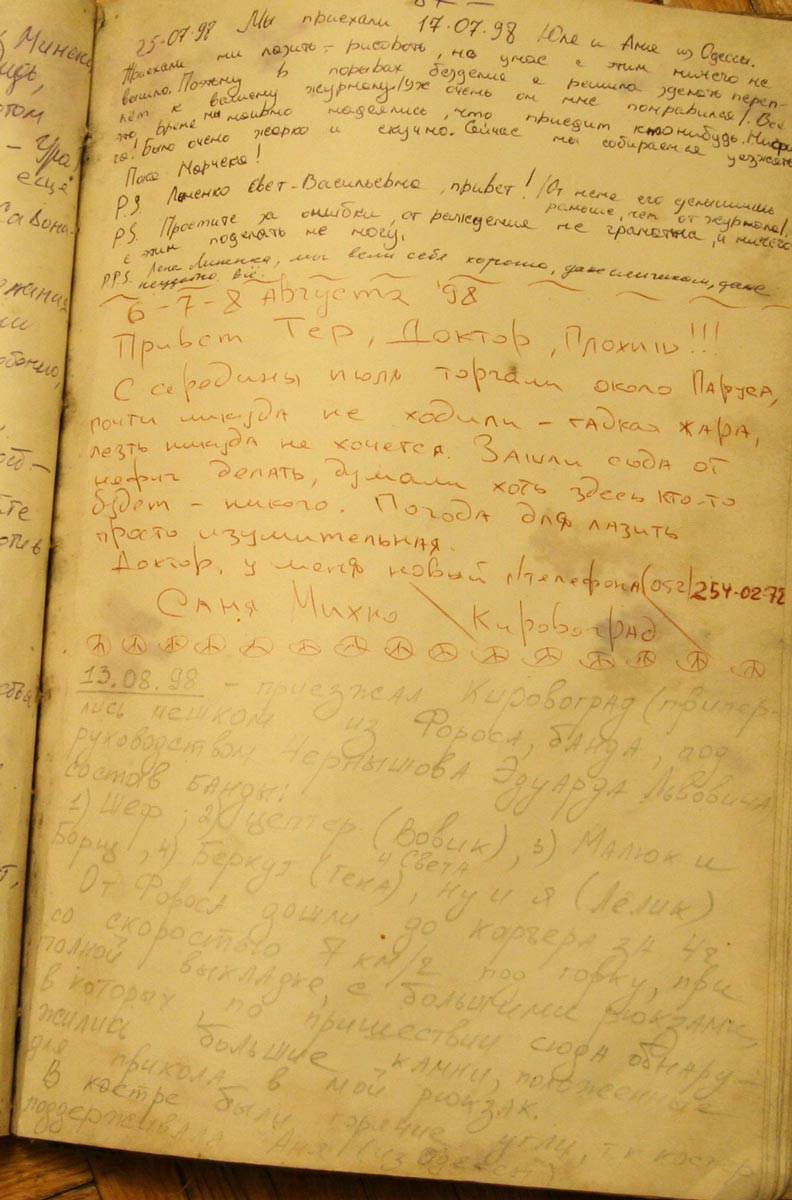 25-07-98 Мы приехали 17.07.98 Юля и Аня из Одессы.
Приехали мы лазить – рисовать, но у нас с этим ничего не
вышло. Поэтому в порывах безделия я решила зделать переп-
лёт к вашому журналу! уж очень он мне понравился!. Всё
это время мы наивно надеялись, что приедит ктонибудь. Нифи-
га! Было очень жарко и скучно. Сейчас мы собираемся уезжать
Пока Марчека!
P.S. Лоненко Свет-Васильевна, привет! /От меня его услышишь
раньше, чем от журнала/.
P.S. Простите за ошибки, от раждения не грамотна, и ничего
с этим поделать не могу.
P.P.S. Лена, мы вели себя хорошо, даже слишком, даже
всё.
6-7-8 Августа '98
Привет Тер, Доктор, Плохиш!!!
С середины июля торчали около Паруса,
почти никуда не ходили – гадкая жара,
лезть никуда не хочется. Зашли сюда от
нефиг делать, думали хоть здесь кто-то
будет – никого. Погода для лазить
просто изумительная.
Доктор, у меня новый № телефона (052) 254-02-72
Саня Михно Кировоград
13.08.98 – приезжал Кировоград (припер-
лись пешком из Фороса, банда, под
руководством Чернышова Эдуарда Львовича
состав банды:
1) Шеф; 2) Цептер (Вовик), 3) Малюк и
Борщ, 4) Беркут (Гека) и Света, ну и я (Лёлик)
От Фороса дошли до карьера за 4ч
со скоростью 7 км/ч под горку, при
полной выкладке, с большими рюкзами,
в которых, по пришествии сюда обнару-
жились большие камни, положенные
для прикола в мой рюкзак.
В костре были горячие угли, т.к костёр
поддерживала Аня (из Одессы)